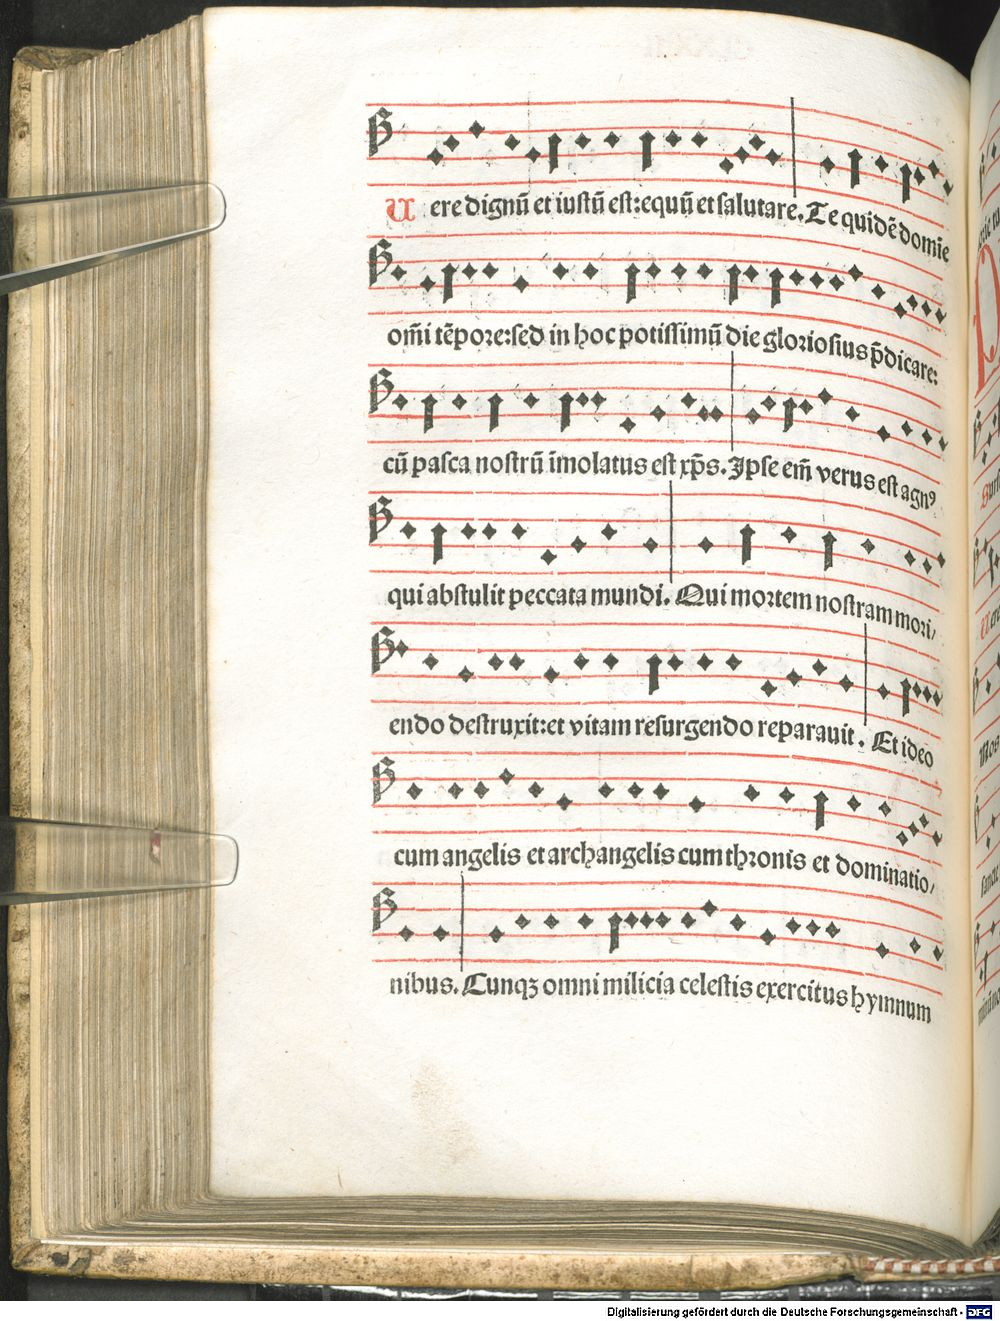 Uere dignū et iustū est:equū et salutare.Te quidē domīe
om̄i tēpore:sed in hoc potissimū die gloriosius p̄dicare:
cū pasca nostrū īmolatus est xp̄s.Ipse em̄ verus est agnꝰ
qui abstulit peccata mundi. Qui mortem nostram mori/
endo destruxit:et vitam resurgendo reparauit. Et ideo
cum angelis et archangelis cum thronis et dominatio/
nibus. Cunqꝫ omni milicia celestis exercitus hymnum
Digitalisierung gefördert durch die Deutsche Forschungsgemeinschaft - DFG